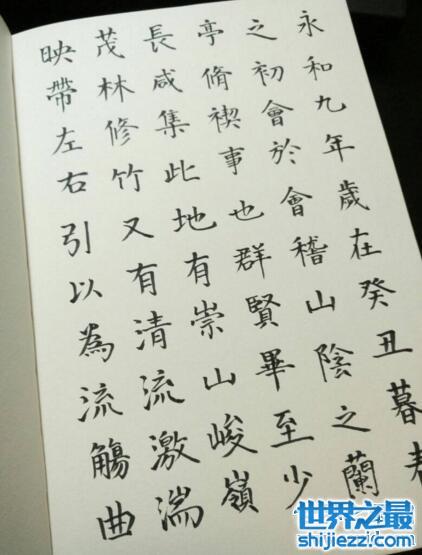 永和九年歲在癸丑暮春
之初會於會稽山陰之蘭
亭脩禊事也群賢畢至少
長咸集此地有崇山峻嶺
茂林修竹又有清流激湍
映帶左右引以為流觴曲
世界之最
shijiezzl.com